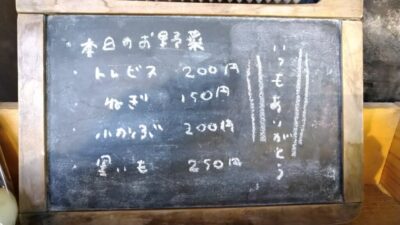 ・本日のお野菜
・トレビス 200円
ねぎ 150円
・小かぶ 200円
・里いも 250円
いつもありがとう